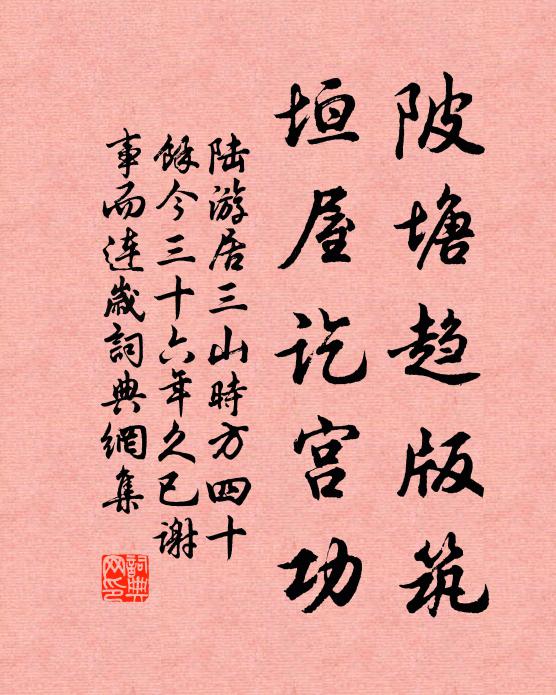 陂塘趋版筑
垣屋讫宫功
陆游居三山時方四十
餘今三十六年久已谢
事而连歲詞典網集
詞典网印